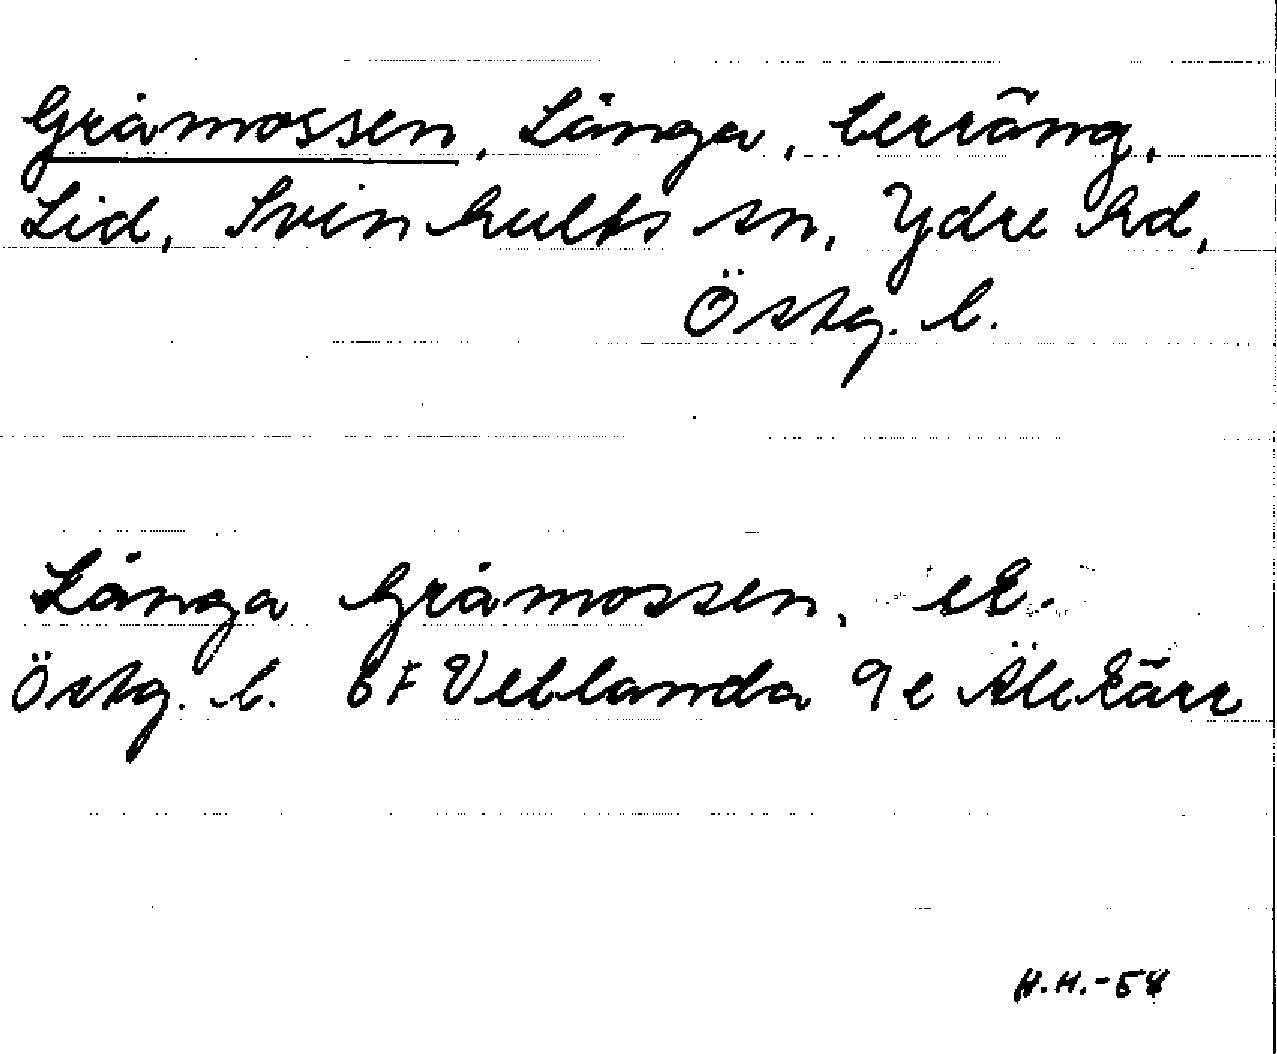 Gråmossen, Långa, terräng,
Lid, Svinhults sn, Ydre hd,
Östg. l.
Långa Gråmossen, ek.
Östg. l. 6F Vetlanda 9e Älekärr
H.H.-54